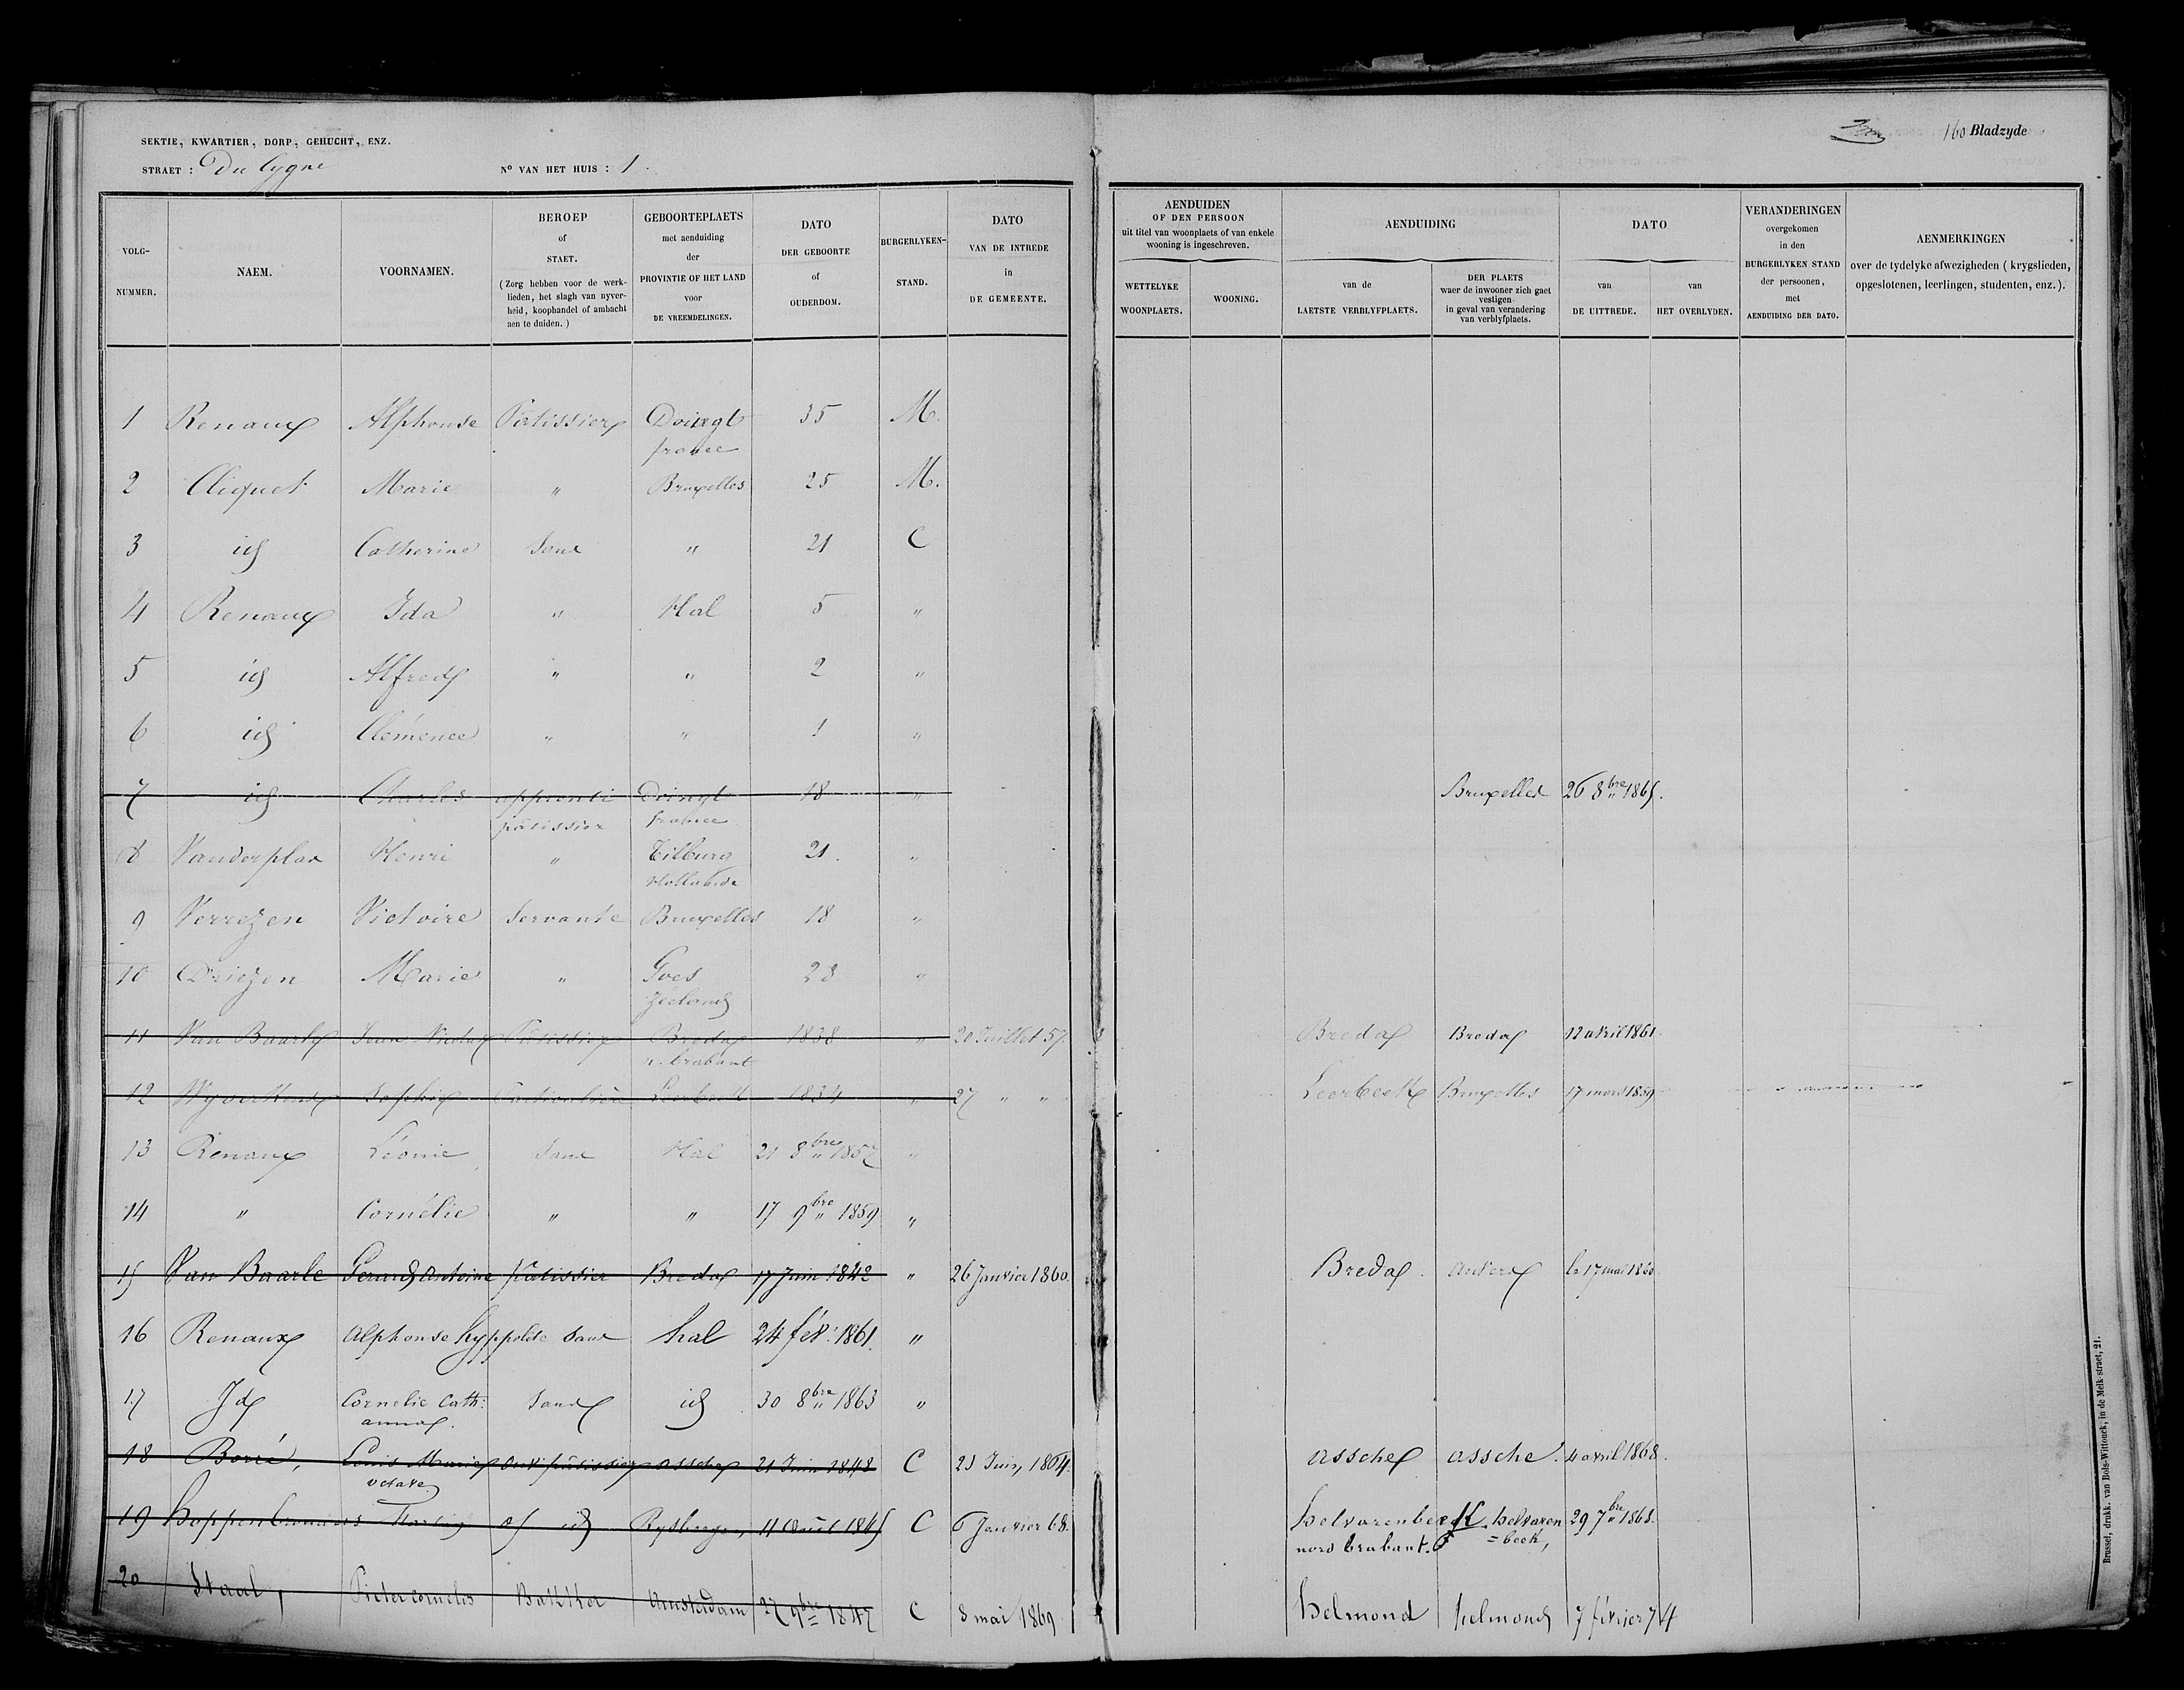 SEKTIE, KWARTIER, DORP, GEHUCHT, ENZ.
STRAET : Du Cygne N° VAN HET HUIS : 1.
160 Bladzyde
VOLG-NUMMER. NAEM. VOORNAMEN. BEROEP of STAET. (Zorg hebben voor de werk-lieden, het slagh van nyver-heid, koophandel of ambacht aen te duiden.) GEBOORTEPLAETS met aenduiding der PROVINTIE OF HET LAND voor DE VREEMDELINGEN. DATO DER GEBOORTE of OUDERDOM. BURGERLYKEN-STAND. DATO VAN DE INTREDE in DE GEMEENTE.
AENDUIDEN OF DEN PERSOON uit titel van woonplaets of van enkele wooning is ingeschreven. WETTELYKE WOONPLAETS. WOONING. AENDUIDING van de LAETSTE VERBLYFPLAETS. DER PLAETS waer de inwooner zich gaet vestigen in geval van verandering van verblyfplaets. DATO van DE UITTREDE. van HET OVERLYDEN. VERANDERINGEN overgekomen in den BURGERLYKEN STAND der persoonen, met AENDUIDING DER DATO. AENMERKINGEN over de tydelyke afwezigheden ( krygslieden, opgeslotenen, leerlingen, studenten, enz.).
1 Renaux Alphonse Pâtissier Doingt france 35 M.
2 Cliquet Marie " Bruxelles 25 M.
3 id Catherine Sans " 21 C
4 Renaux Ida " Hal 5 "
5 id Alfred " " 2 "
6 id Clémence " " 1 "
7 id Charles apprenti pâtissier Doingt france 18 " Bruxelles 26 8bre 1865.
8 Vanderplas Henri " Tilburg Hollande 21. "
9 Verrezen Victoire Servante Bruxelles 18 "
10 Driezen Marie " Goes Zéeland 28 "
11 Van Baarle Jean Pâtissier Breda n. brabant 1838 " 20 Juillet 57. Breda Breda 12 avril 1861.
12 Sophie Leerbeek 1834 " 27 " " Leerbeek Bruxelles 17 mars 1859
13 Renaux Léonie Sans Hal 21 8bre 1857 "
14 " Cornélie " " 17 9bre 1859 "
15 Van Baarle Gerard Antoine pâtissier Breda 17 Juin 1842 " 26 Janvier 1860. Breda. Anvers le 17 mai 1860.
16 Renaux Alphonse hyppolite Sans hal 24 fév: 1861. "
17 Id Cornelie Cath: anna. Sans id 30 8bre 1863 "
18 Borré, Louis Marie octave ouv: pâtissier assche 21 Juin 1848 C 23 Juin, 1864. assche assche. 4 avril 1868.
19 hoppenbrouwers id Rysbergen 11 Août 1845 C 6 Janvier 68. helvarenbeek nord brabant. helvaren=beek, 29 7bre 1868.
20 Staal, Pieter cornelis Bakker Amsterdam 27 9bre 1847 C 8 mai 1869 helmond helmond 7 février 74
Brussel, drukk. van Bols-Wittouck, in de Melk-straet, 21.